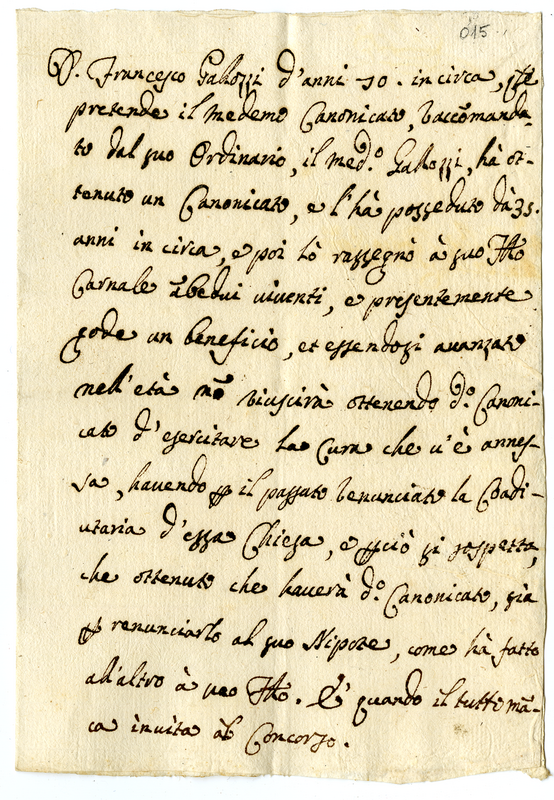 015
D. Francesco Gallozzi d'anni 70. in circa,
pretende il medemo Canonicato, raccõmanda-
to dal suo Ordinario, il med.º Gallozzi, hà ot-
tenuto un Canonicato, e l'hà posseduto dà 35.
anni in circa, e poi lò rassegnò à suo
Carnale viventi, e presentemente
gode un beneficio, et essendosi avanzato
nell'età nõ riuscirà ottenendo d.º Canoni-
cato d'esercitare la Cura che v'è annes-
sa, havendo ꝑ il passato renunciato la Coadi-
utaria d'essa Chiesa, e ꝑciò si sospetta,
che ottenuto che haverà d.º Canonicato, sia
ꝑ renunciarlo al suo Nipote, come hà fatto
all'altro à suo È quando il tutto mã-
ca invita àl Concorso.